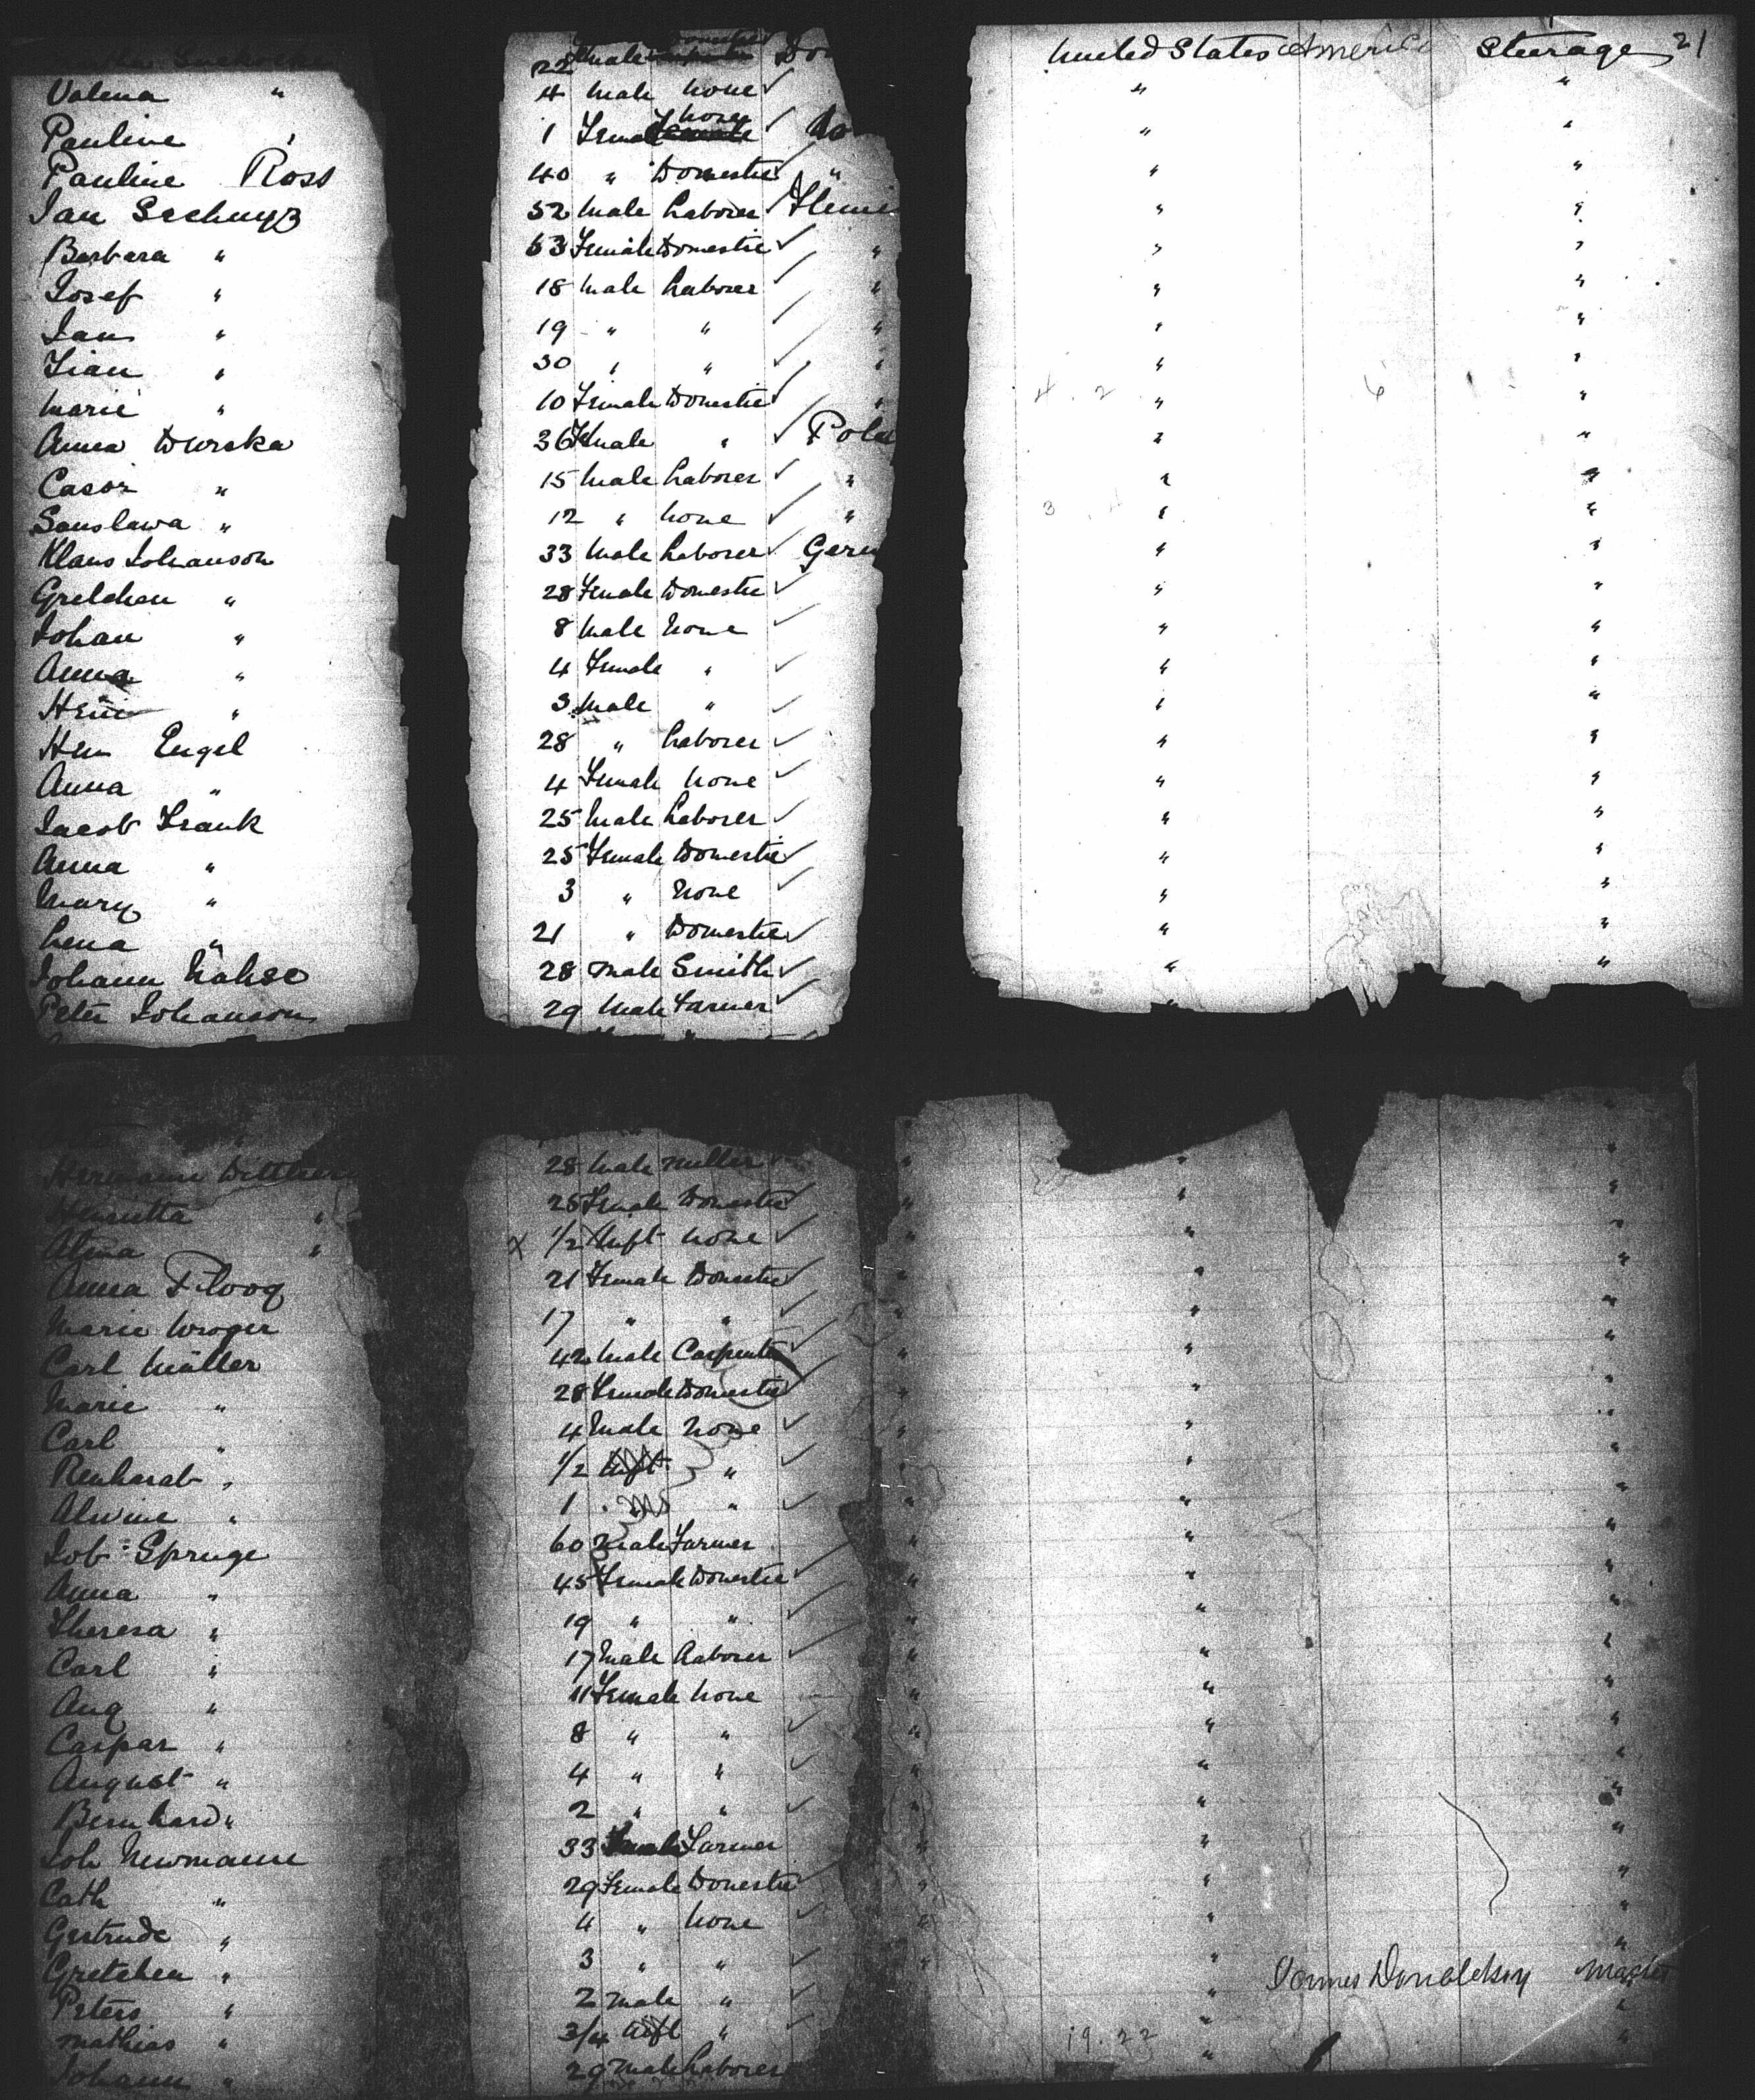 22 male United States America Steerage 21
Valena " 4 Male None ✓ " "
Pauline " 1 Female None ✓ " "
Pauline Ross 40 " Domestic ✓ " " "
Jan 52 Male Laborer ✓ " "
Barbara " 53 Female Domestic ✓ " " "
Josef " 18 Male Laborer ✓ " " "
Jan " 19 " " ✓ " " "
" 30 " " ✓ " " "
Marie " 10 Female Domestic ✓ " " "
Anna Durska 36 Female " ✓ Pola " "
Casor " 15 Male Laborer ✓ " " "
Sanslawa " 12 " None ✓ " " "
Klaus Johanson 33 Male Laborer ✓ Germ " "
Gretchen " 28 Female Domestic ✓ " "
Johan " 8 Male None ✓ " "
Anna " 4 Female " ✓ " "
" 3 Male " ✓ " "
Hein Engel 28 " Laborer ✓ " "
Anna " 4 Female None ✓ " "
Jacob Frank 25 Male Laborer ✓ " "
Anna " 25 Female Domestic ✓ " "
Mary " 3 " None ✓ " "
Lena " 21 " Domestic ✓ " "
Johann 28 Male Smith ✓ " "
Peter Johanson 29 Male Farmer ✓ "
Hermann 28 Male Miller ✓ " "
Henrietta " 25 Female Domestic ✓ " "
Alma " x 1/2 Inft None ✓ " "
Anna 21 Female Domestic ✓ " "
Marie 17 " " ✓ " "
Carl Müller 42 Male Carpenter ✓ " "
Marie " 28 Female Domestic " "
Carl " 4 Male None ✓ " "
Renhardt " 1/2 Inft " ✓ " "
Alwine " 1 " ✓ " "
Joh: Spruge 60 Male Farmer " "
Anna " 45 Female Domestic ✓ " "
Theresa " 19 " " ✓ " "
Carl " 17 Male Laborer ✓ " "
Aug " 11 Female None " "
Caspar " 8 " " ✓ " "
August " 4 " " ✓ " "
Bernhard " 2 " " ✓ " "
Joh Newmann 33 Farmer " "
Cath " 29 Female Domestic ✓ " "
Gertrude " 4 " None ✓ " "
Gretchen " 3 " " ✓ " James Donaldson Master
Peters " 2 Male " ✓ " "
Mathias " 3/4 Inft " ✓ 19.22 " "
Johann " 29 Male Laborer "